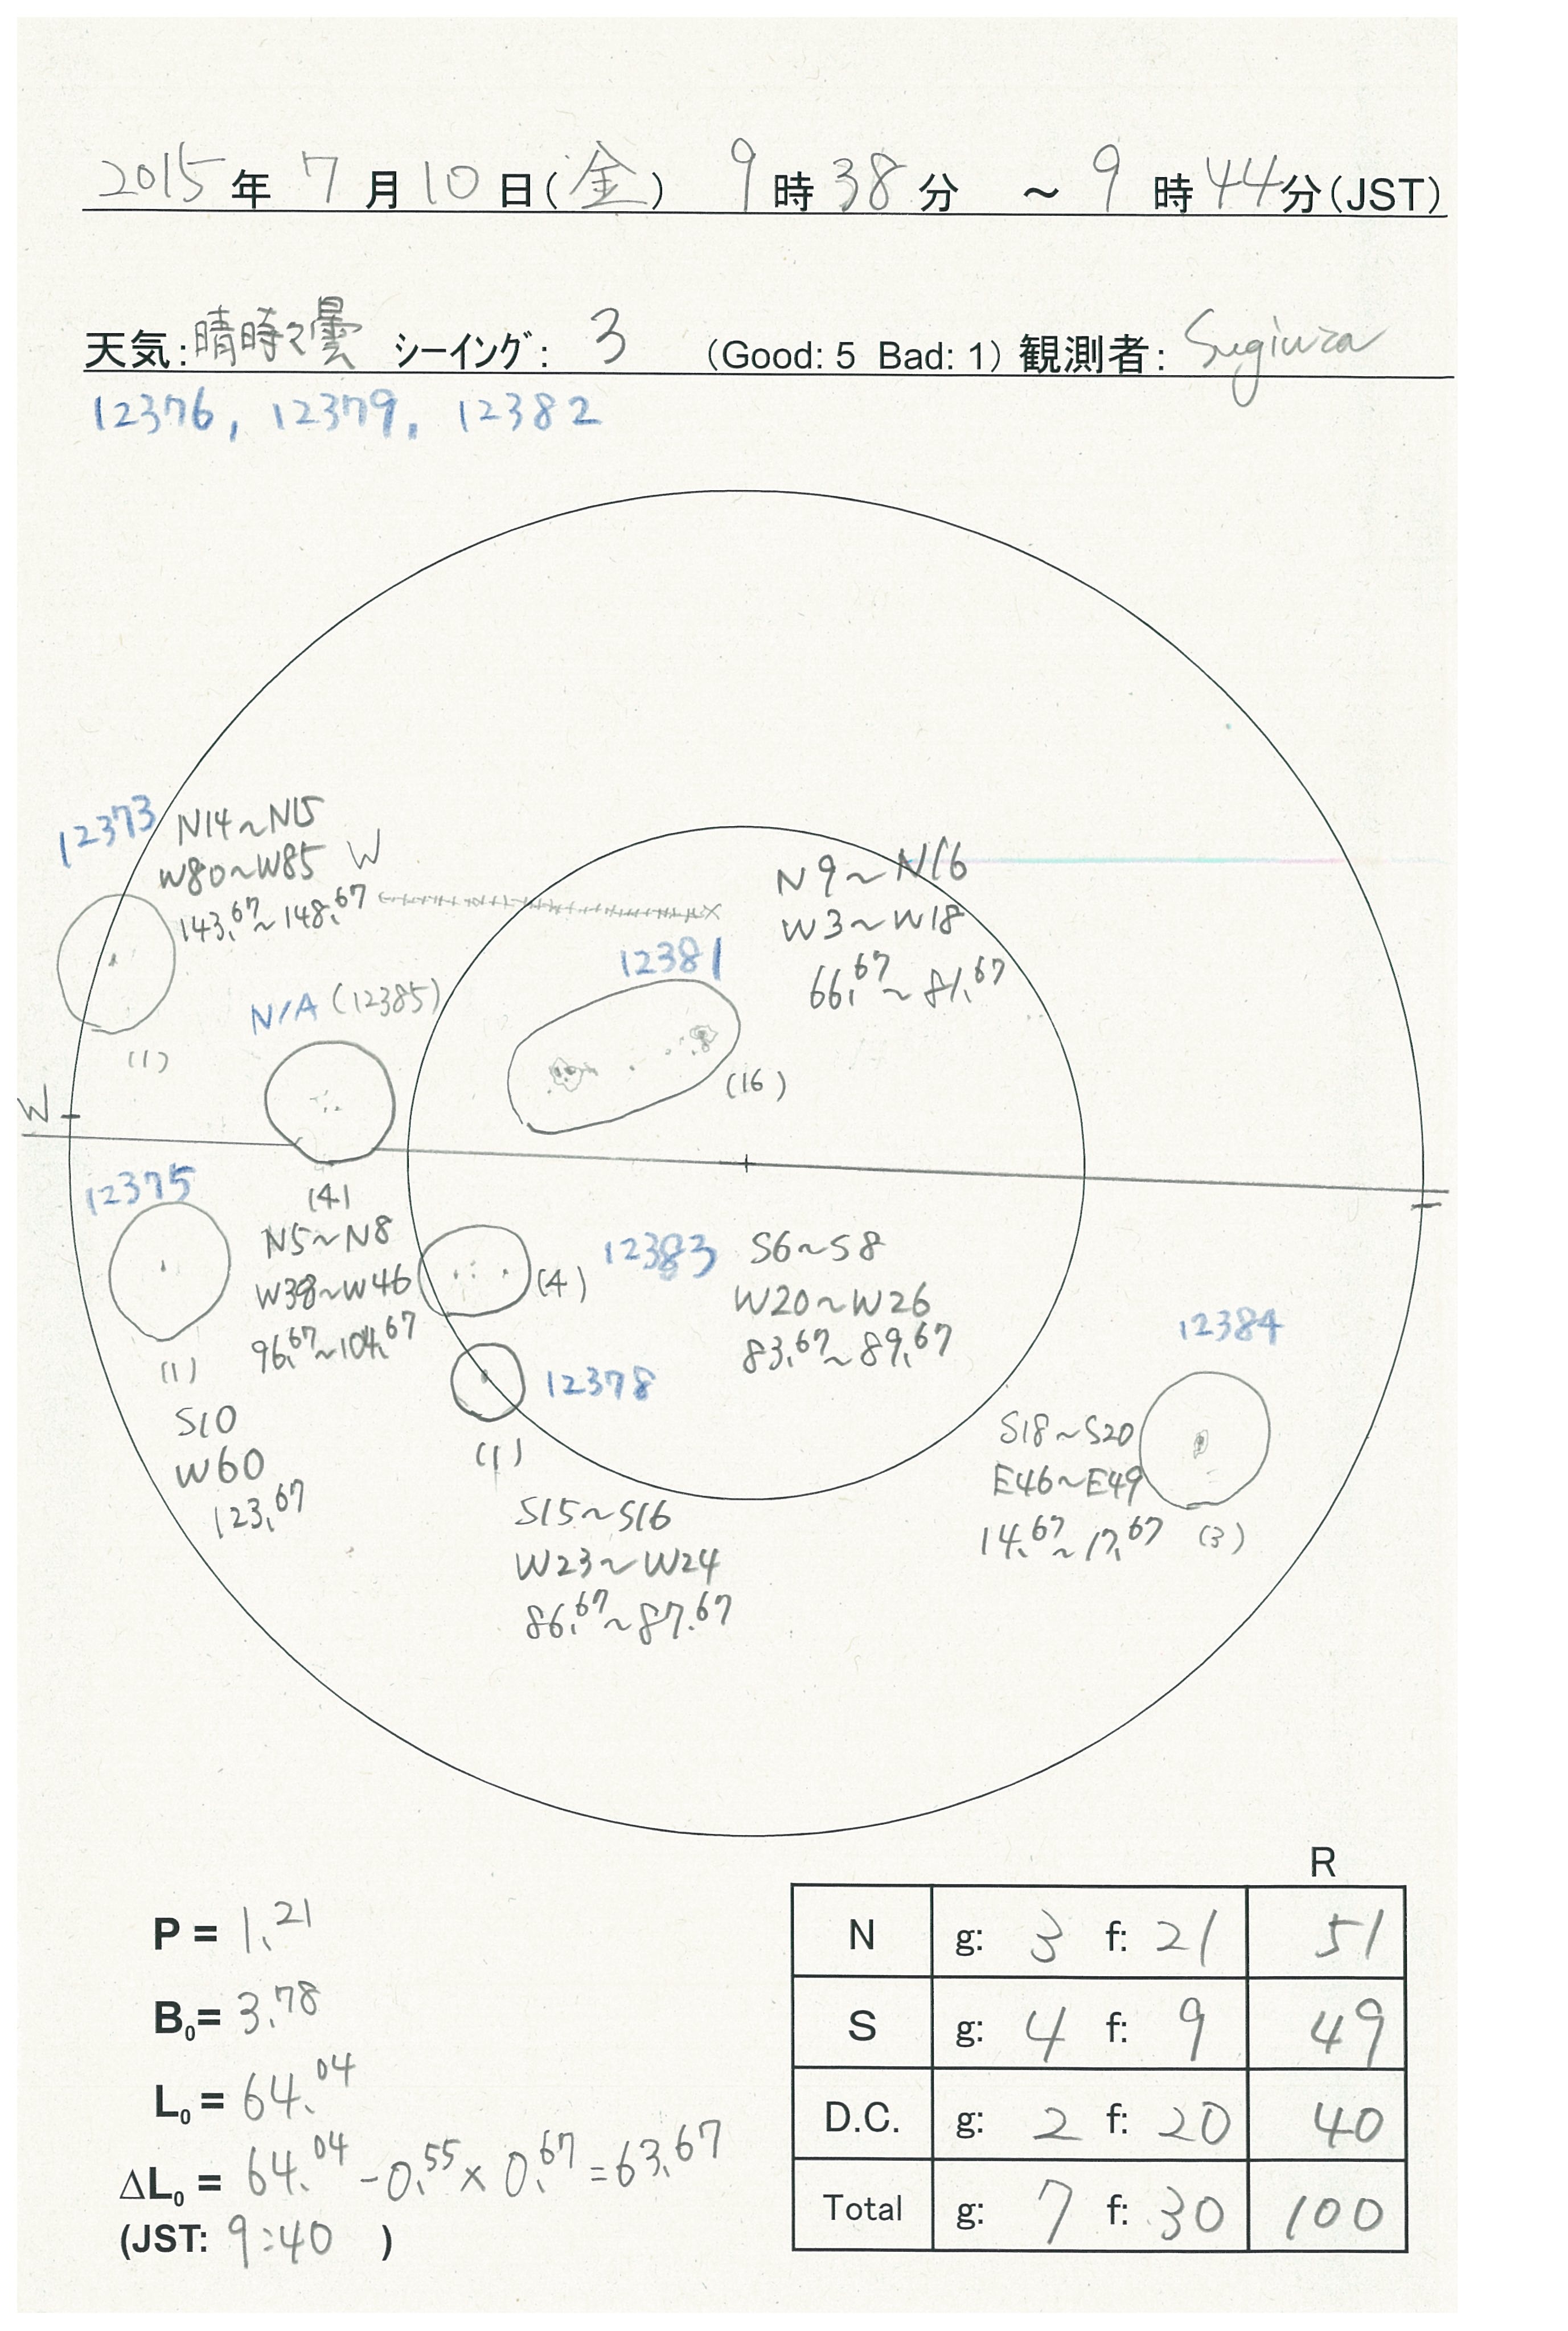 2015年 7月10日(金) 9時38分 ～9時44分(JST)
天気:晴時々曇 シーイング: 3 (Good: 5 Bad: 1) 観測者: Sugiura
12376, 12379, 12382
12373
N14~N15
W80~W85 W
143.67~148.67
(1)
N9~N16
W3~W18
66.67~81.67
12381
(16)
N/A (12385)
(4)
N5~N8
W38~W46
96.67~104.67
W
12375
(1)
S10
W60
123.67
12383
(4)
S6~S8
W20~W26
83.67~89.67
12378
(1)
S15~S16
W23~W24
86.67~87.67
12384
S18~S20
E46~E49
14.67~17.67
(3)
P = 1.21
B0= 3.78
L0 = 64.04
ΔL0 = 64.04 -0.55 × 0.67 = 63.67
(JST: 9:40 )
R
N g: 3 f: 21 51
S g: 4 f: 9 49
D.C. g: 2 f: 20 40
Total g: 7 f: 30 100